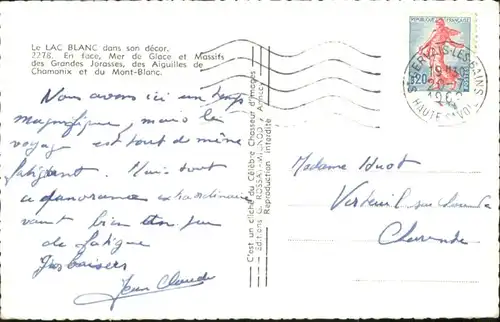 Le LAC BLANC dans son décor.
2276. En face, Mer de Glace et Massifs
des Grandes Jorasses, des Aiguilles de
Chamonix et du Mont-Blanc.
Nous avons ici un temps
magnifique, mais le
voyage est tout de même
fatigant. Mais tout
ce panorama extraordinaire
vaut bien un peu
de fatigue
Gros baisers
Jean Claude
C'est un cliché du Célèbre Chasseur d'Images
Éditions G. ROSSAT-MIGNOD Annecy
Reproduction interdite
REPUBLIQUE FRANÇAISE
0,20
POSTES
ST GERVAIS-LES-BAINS
HAUTE SAVOIE
Madame Huot
Verteuil sur Charente
Charente